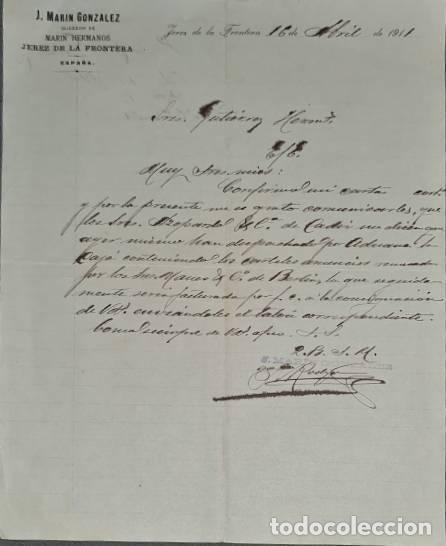 J. MARIN GONZALEZ
SUCESOR DE
MARIN HERMANOS
JEREZ DE LA FRONTERA
ESPAÑA.
Jerez de la Frontera 16 de Abril de 1911.
Sres. Gutiérrez Hermos.
Muy Sres. mios:
Confirmo mi carta
y por la presente me es grato comunicarles, que
los Sres. & Ca. de Cadiz me dicen con
ayer mismo han despachado por Aduana 1
Caja conteniendo los carteles anuncios
por los Sres. & Co. de Berlin, la que seguida
mente será facturada por f. c. a la consignación
de Vds. enviandoles el talón correspondiente.
Como siempre de Vds. afmo. S. S.
Q. B. S. M.
todocoleccion.net